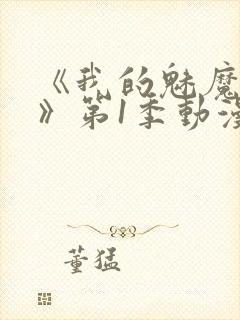 《我的魅魔
》第1季動漫
董猛